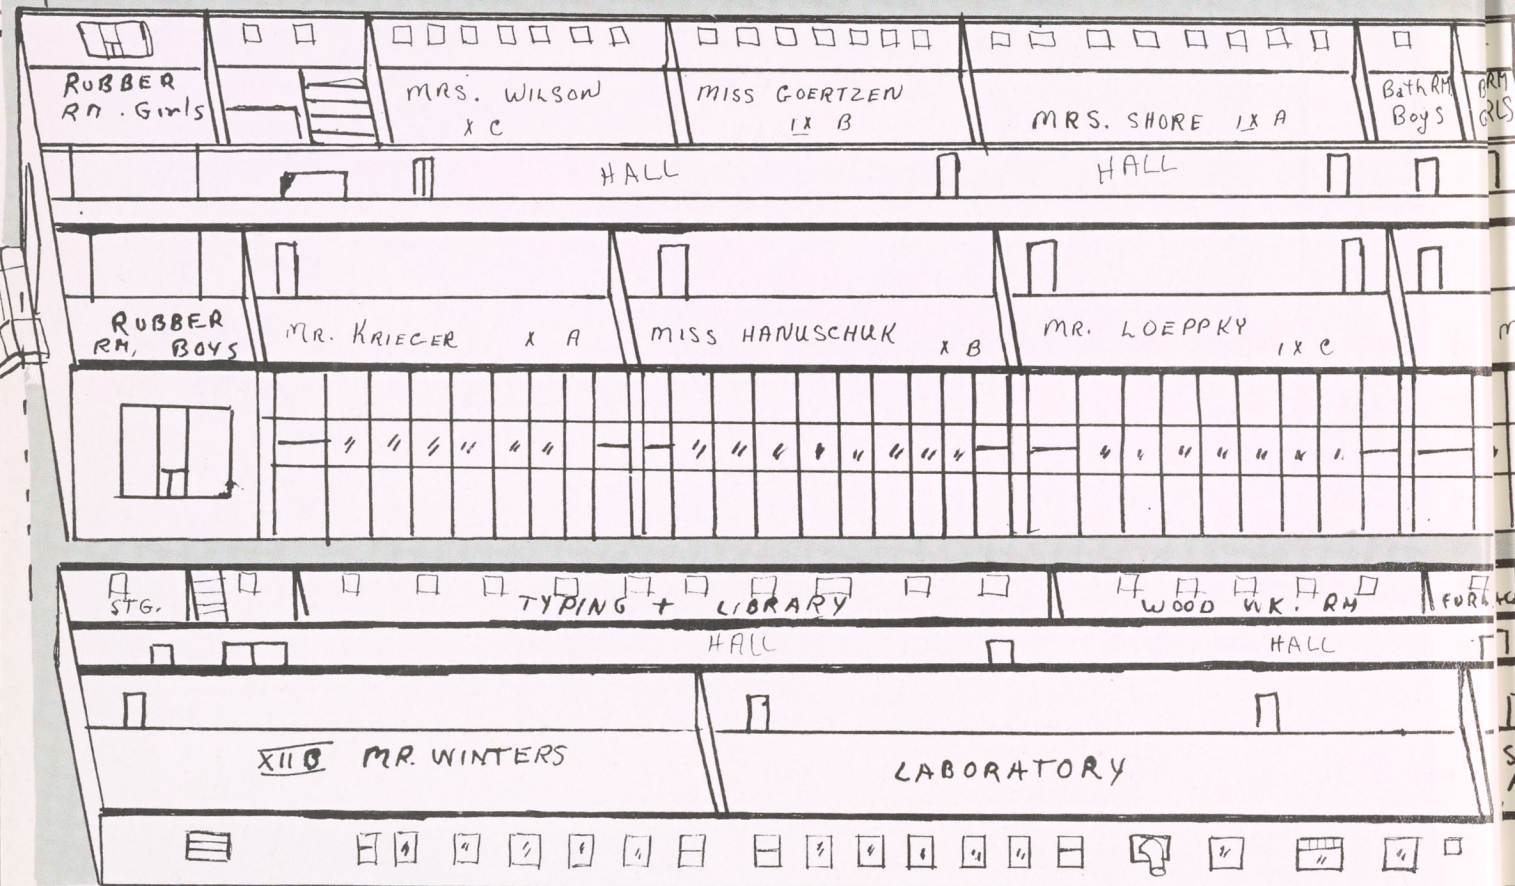 RUBBER
RM. Girls
MRS. WILSON
X C
MISS GOERTZEN
IX B
MRS. SHORE IX A
Bath RM
Boys
HALL
HALL
RUBBER
RM, BOYS
MR. KRIEGER X A
MISS HANUSCHUK
X B
MR. LOEPPKY
IX C
STG.
TYPING + LIBRARY
WOOD WK. RM
HALL
HALL
XII B MR. WINTERS
LABORATORY